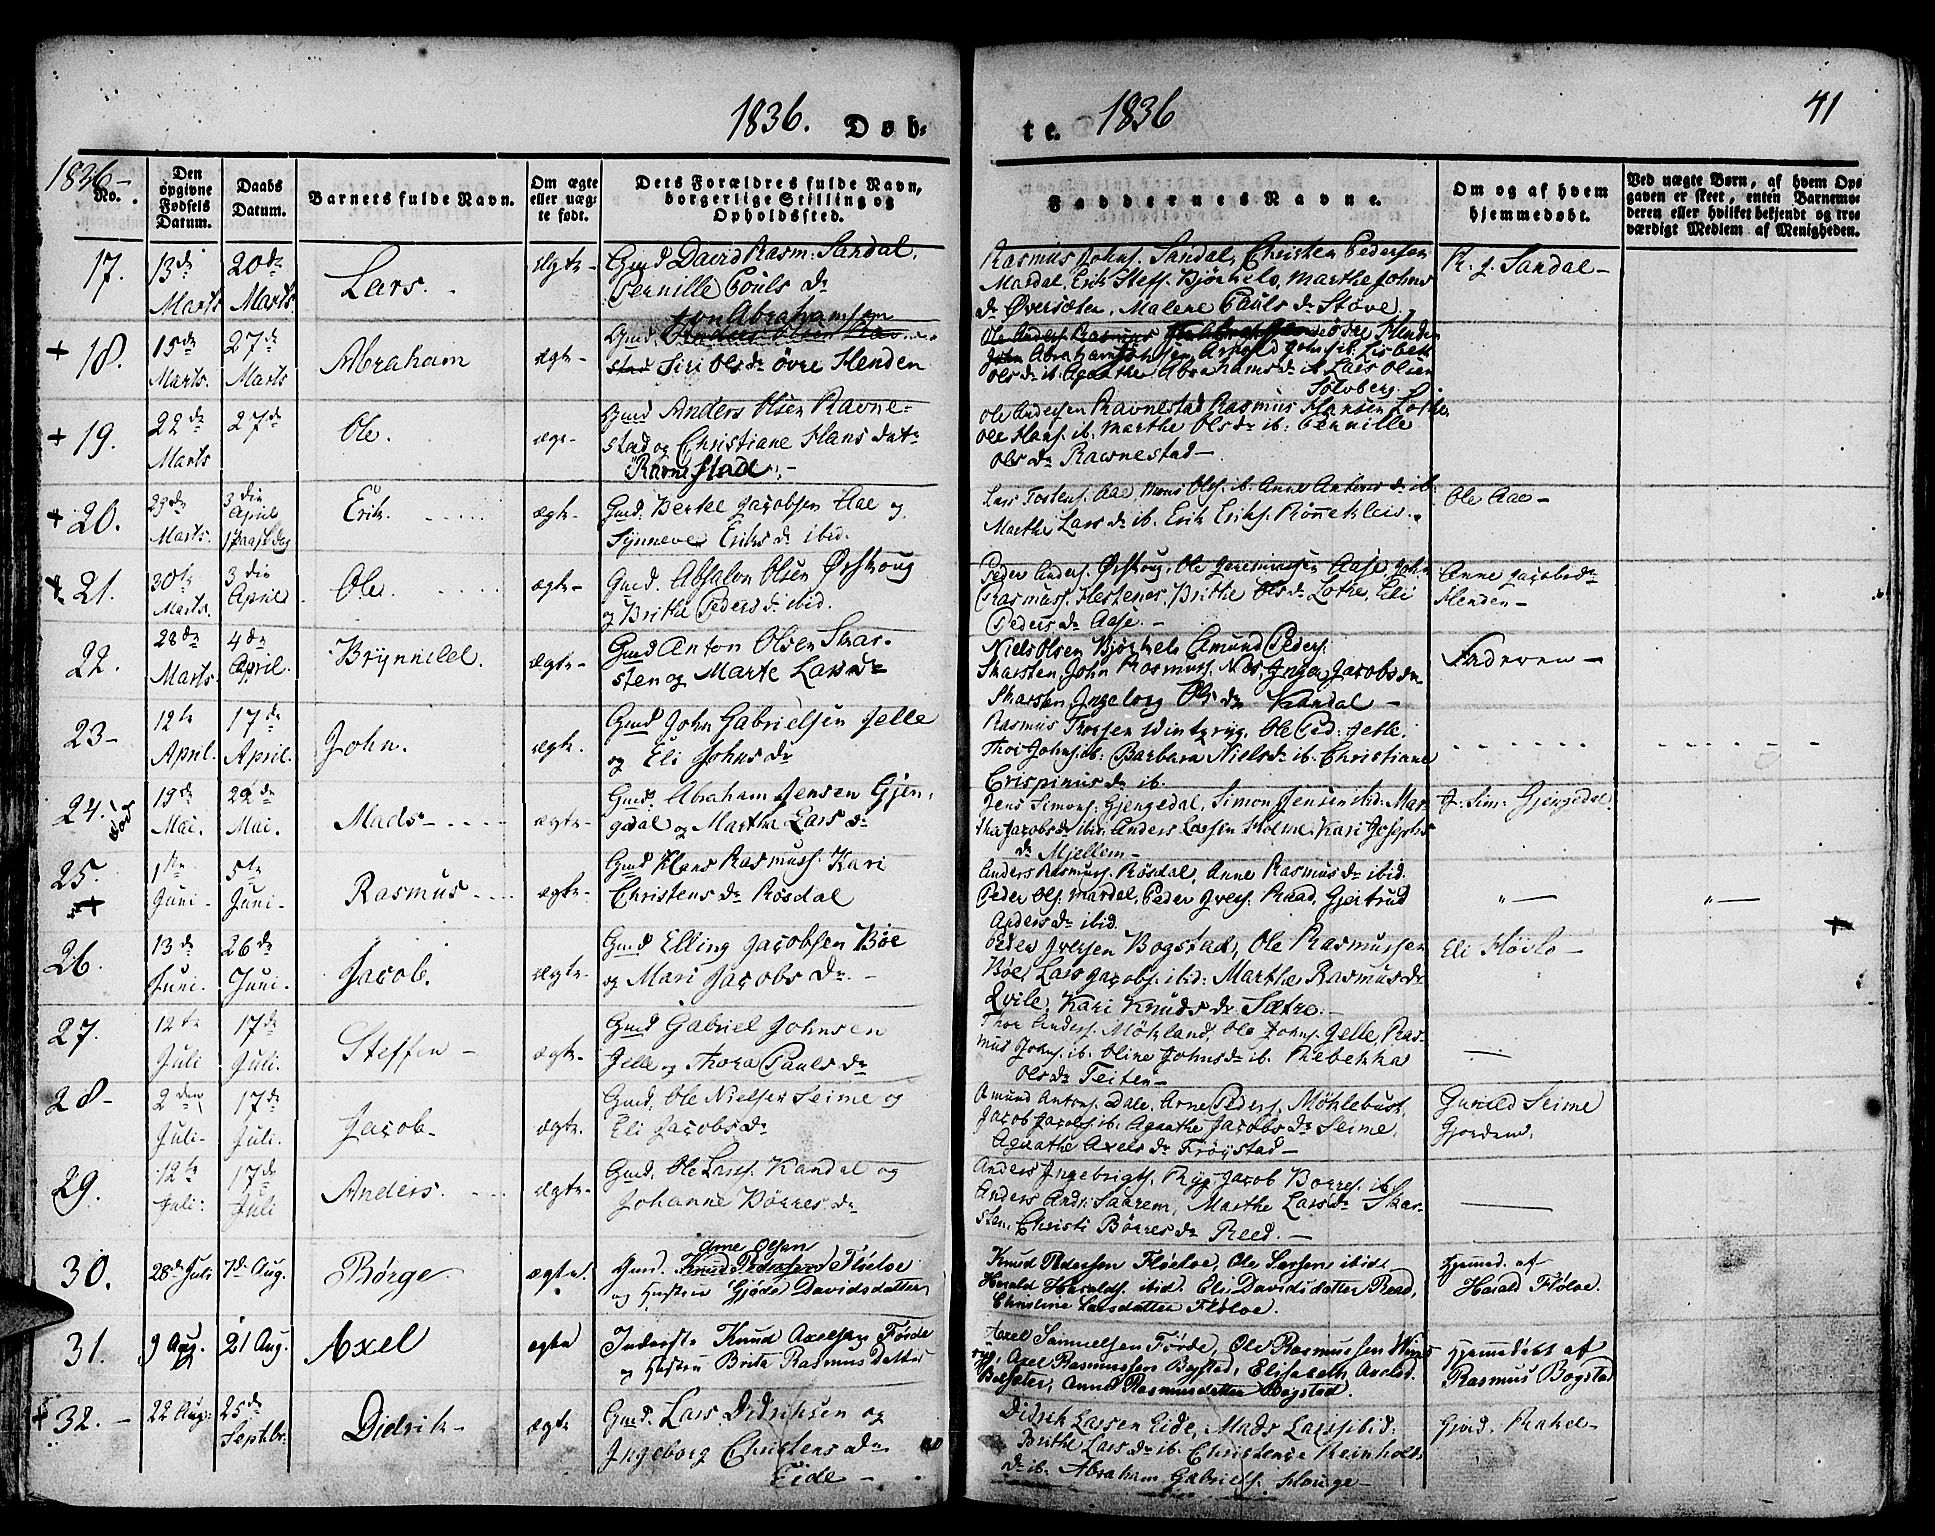 1836. Døb-
te. 1836
41
1836-
No. Den opgivne Fødsels Datum. Daabs Datum. Barnets fulde Navn. Om ægte eller uægte født. Dets Forældres fulde Navn, borgerlige Stilling og Opholdssted. Faddernes Navne. Om og af hvem hjemmedøbt. Ved uægte Børn, af hvem Opgaven er skeet, enten Barnemoderen eller hvilket bekjendt og troværdigt Medlem af Menigheden.
17. 13de Marts 20de Marts. Lars. ægte-
Gmd David Rasm. Sandal.
Pernille Pouls dr
Rasmus Johns. Sandal, Christen Pedersen
Mardal, Erik Steff. Bjørkelo, Marthe Johns
dr Øversæter, Malene Pauls dr Støve,
R. J. Sandal-
+ 18. 15de Marts. 27de Marts Abraham ægte-
Jon Abrahamsen
Gmd.
Siri Ols dr øvre Henden
Ole Anders. Rasmus øvre Henden
Ols dr ib. Agathe Abrahams dr ib Lars Olsen
Solvberg.
+ 19. 22de Marts 27de Ole. ægte-
Gmd Anders Olsen Ravne-
stad og Christiane Hans datr
Ravnestad.-
Ole Andersen Ravnestad Rasmus Hansen Lothe
Ole Hans. ib. Marthe Ols dr ib: Pernille
Ols dr Ravnestad-
+ 20. 23de Marts. 3die April 1 Paaskedag Erik. ægte-
Gmd. Berthe Jacobsen Aae og
Synneve Eriks dr ibid.
Lars Tostens. Aae, Mons Ols. ib. Anne Anders dr ib.
Marthe Lars dr ib. Erik Eriks. Rønneklev.
Ole Aae-
+ 21. 30te Marts. 3die April Ole. ægte-
Gmd. Absalon Olsen Ørstoug
og Brithe Peders dr ibid.
Peder Anders. Ørstoug, Ole Jeremiassen Aase, John
Rasmuss. Hestenes, Brithe Ols dr Lothe, Eli
Peders dr Aase.-
Anne Jacobsdr
Henden-
22. 28de Marts. 4de April. Brynnild. ægte-
Gmd Anton Olsen Skar-
sten og Marte Lars dr
Niels Olsen Bjørkelo Amund Peders.
Skarsten, John Rasmuss. Nos, Inger Jacobs dr
Skarsten, Ingeborg Ols dr Kandal -
Faderen -
23- 12te April. 17de April. John. ægte.
Gmd John Gabrielsen Jelle
og Eli Johns dr
Rasmus Thorsen Vintryg, Ole Ped. Jelle.
Thor Johns. ib. Barbara Niels dr ib. Christiane
Crispinus dr ib.
24. død 19de Mai. 22de Mai. Mads- ægte-
Gmd. Abraham Jensen Gjen-
gdal og Marthe Lars dr
Jens Simons. Gjengedal, Simon Jensen ibid. Mar-
tha Jacobs dr ibid. Anders Larsen Holme, Kari Josephs
dr Mjellem-
J. Sim. Gjengedal
25. 1ste Juni. 5te Juni. Rasmus ægte-
Gmd Hans Rasmuss. Kari
Christens dr Røsdal
Anders Rasmuss. Røsdal, Anne Rasmus dr ibid.
Peder Ols. Mardal, Peder Ivers. Raad, Gjertrud
Anders dr ibid.
26. 13de Juni. 26de Juni. Jacob. ægte.
Gmd Elling Jacobsen Bøe
og Mari Jacobs dr. -
Peder Iversen Bogstad, Ole Rasmussen
Bøe, Lars Jacobs. ibid: Marthe Rasmus dr
Qvile, Kari Knuds dr Sætre.-
Eli Høilo -
27. 12te Juli 17de Juli. Steffen - ægte.
Gmd Gabriel Johnsen
Jelle og Thora Pauls dr
Thor Anders. Møkland, Ole Johns. Jelle, Ras-
mus Johns. ib. Oline Johns dr ib. Rebekka
Ols dr Teiten -
28- 2den Juli- 17de Juli. Jacob- ægte.
Gmd. Ole Nielsen Seime og
Eli Jacobs dr
Amund Antons. Dale. Arne Peders. Møklebust,
Jacob Jacobs. ib. Agnathe Jacobs dr Seime.
Agnathe Axels dr Frøystad -
Gunild Seime
Gjordem.
29. 12te Juli. 17de Juli Anders. ægte-
Gmd. Ole Larss. Kandal og
Johanne Børres dr
Anders Ingebrigts. Ryg. Jacob Borres. ib.
Anders Andr. Saarem, Marthe Lars dr Skar-
sten. Christi Børres dr Reed.-
30. 28de Juli 7de Aug. Børge. ægte.
Arne Olsen
Gmd. Knud Pedersen Fløeloe
og Hustru Gjøde Davidsdatter
Knud Pedersen Fløeloe, Ole Larsen ibid.
Harald Haralds. ibid. Eli Davidsdatter Reed,
Christine Larsdatter Fløloe.
Hjemmed. af
Harald Fløloe.
31. 9 Aug. 21 Aug. Axel ægte
Inderste Knud Axelsen Førde
og Hustru Brita Rasmus Datter
Axel Samuelsen Førde, Ole Rasmussen Wint-
ryg, Axel Rasmussen Bogstad, Elisabeth Axelsd.
Anne Rasmusdatter Bogstad.
Hjemmedøbt af
Rasmus Bogstad
+ 32. - 22 Aug. 25de Septbr. Didrik- ægte
Gmd. Lars Didriksen og
Ingeborg Christens dr
Eide -
Didrik Larsen Eide, Mads Larss. ibid:
Brithe Lars dr ib. Christense Reinholds
dr ib. Abraham Gabriels. Hauge-
Gjord. Rakel-